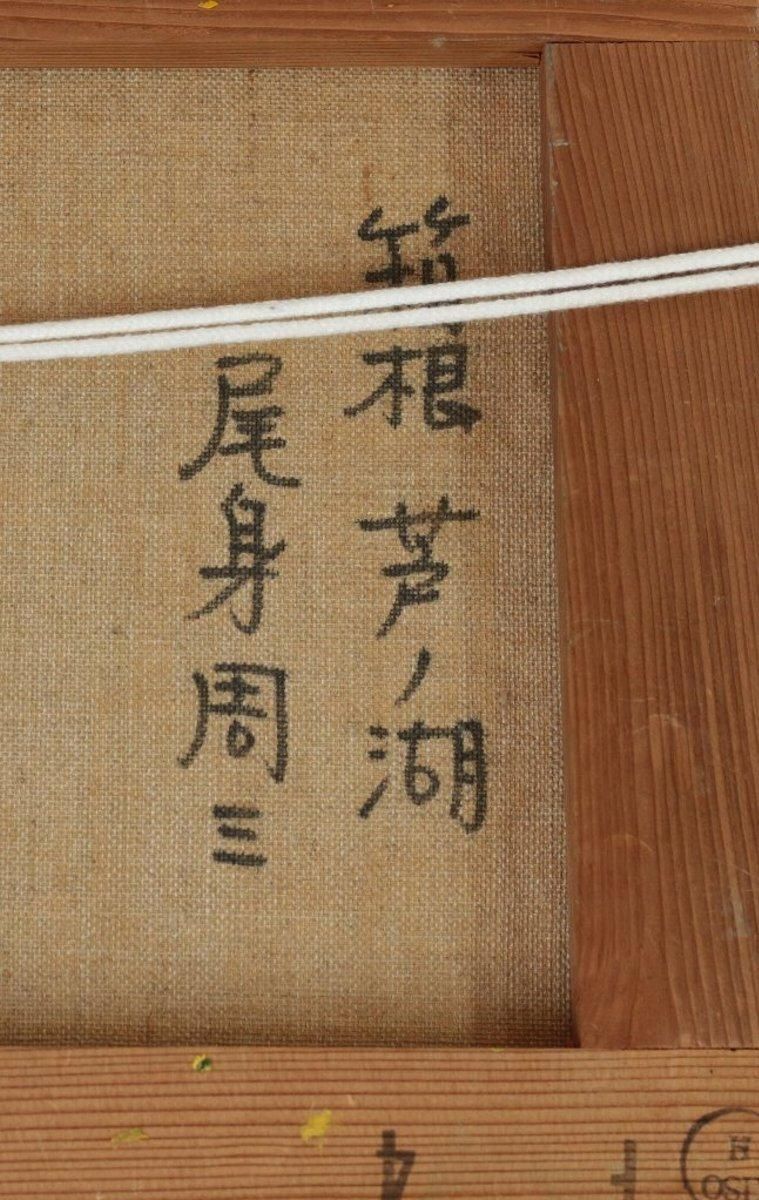 箱根 芦ノ湖
尾身周三
4